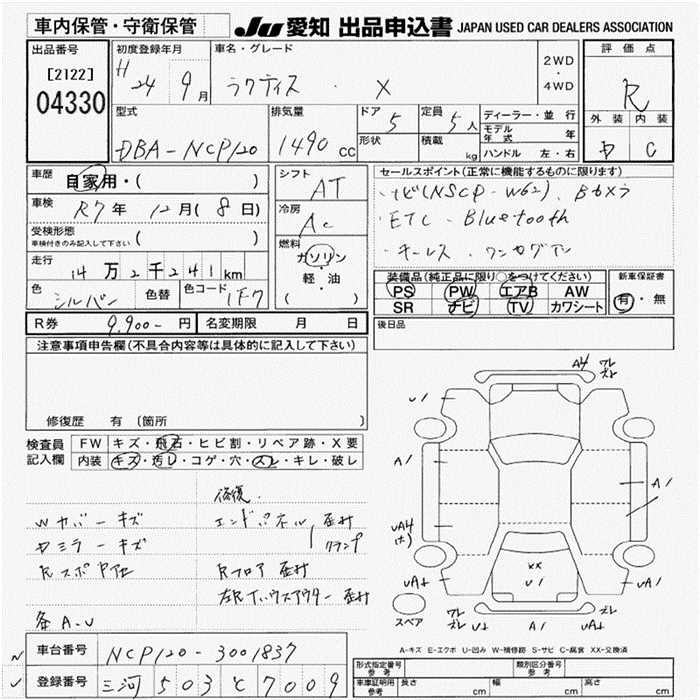 車内保管・守衛保管
JU 愛知 出品申込書 JAPAN USED CAR DEALERS ASSOCIATION
出品番号
[2122]
04330
初度登録年月
H24 9月
車名・グレード
ラクティス ・ X
2WD
・
4WD
評価点
R
外装 内装
D C
型式
DBA-NCP120
排気量
1490 cc
ドア
5
形状
定員
5人
積載
kg
ディーラー・並行
モデル年式 年
ハンドル 左・右
車歴
自家用・( )
車検
R7年 12月( 8日)
受検形態
車検付きのみ記入して下さい ( )
走行
14万2千241km
色
シルバー
色替
色コード
1F7
シフト
AT
冷房
AC
燃料
ガソリン
軽・油
( )
セールスポイント(正常に機能するものに限ります)
・ナビ(NSCP-W62)、Bカメラ
・ETC ・Bluetooth
・キーレス ・ワンセグ
装備品(純正品に限り○をつけてください)
PS PW エアB AW
SR ナビ TV カワシート
新車保証書
有・無
R券 9,900- 円 名変期限 月 日
後日品
注意事項申告欄(不具合内容等は具体的に記入して下さい)
修復歴 有 〔箇所 〕
検査員記入欄
FW キズ・飛石・ヒビ割・リペア跡・X要
内装 キズ・汚レ・コゲ・穴・スレ・キレ・破レ
修復.
Wカバーキズ エンドパネル 歪ミ
Dミラーキズ クランプ
Rスポ Rフロア 歪ミ
左Rインウスアウター 歪ミ
A-U
A4 ワレ ズレ
U1
A1
A1
UA4
XX
U1
UA1
ワレ ズレ
A1
ワレ ズレ
スペア
A-キズ E-エクボ U-凹み W-補修跡 S-サビ C-腐食 XX-交換済
車台番号 NCP120-3001837
登録番号 三河 503 て 7009
形式指定番号 参考
類別区分番号 参考
車庫証明用 参考
長さ cm 幅 cm 高さ cm